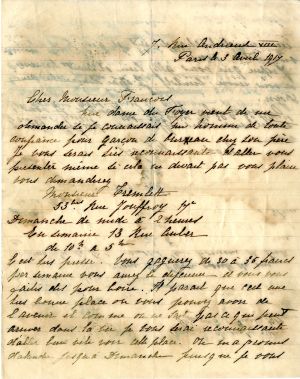 7, Rue Andrieux VIII
Paris le 3 Avril 1917
Cher Monsieur François
Une dame du Foyer vient de me
demander si je connaissais un homme de toute
confiance pour garçon de Bureau chez son père
je vous serais très reconnaissante d'aller vous
présenter même si cela ne devait pas vous plaire
vous demanderez
Monsieur Tremlett
53 Rue Jouffroy 17e
Dimanche de midi à 2 heures
En semaine 13 Rue Auber
de 10h à 5h
C'est très pressé. Vous gagnerez de 30 à 36 francs
par semaine vous avez le déjeuner et vous vous
pour boire. Il parait que c'est une
très bonne place où vous pouvez avoir de
l'avenir et comme on ne sait pas ce qui peut
arriver dans la vie je vous serai reconnaissante
d'aller bien vite voir cette place. On m'a promis
d'attendre jusqu'à Dimanche puisque je vous